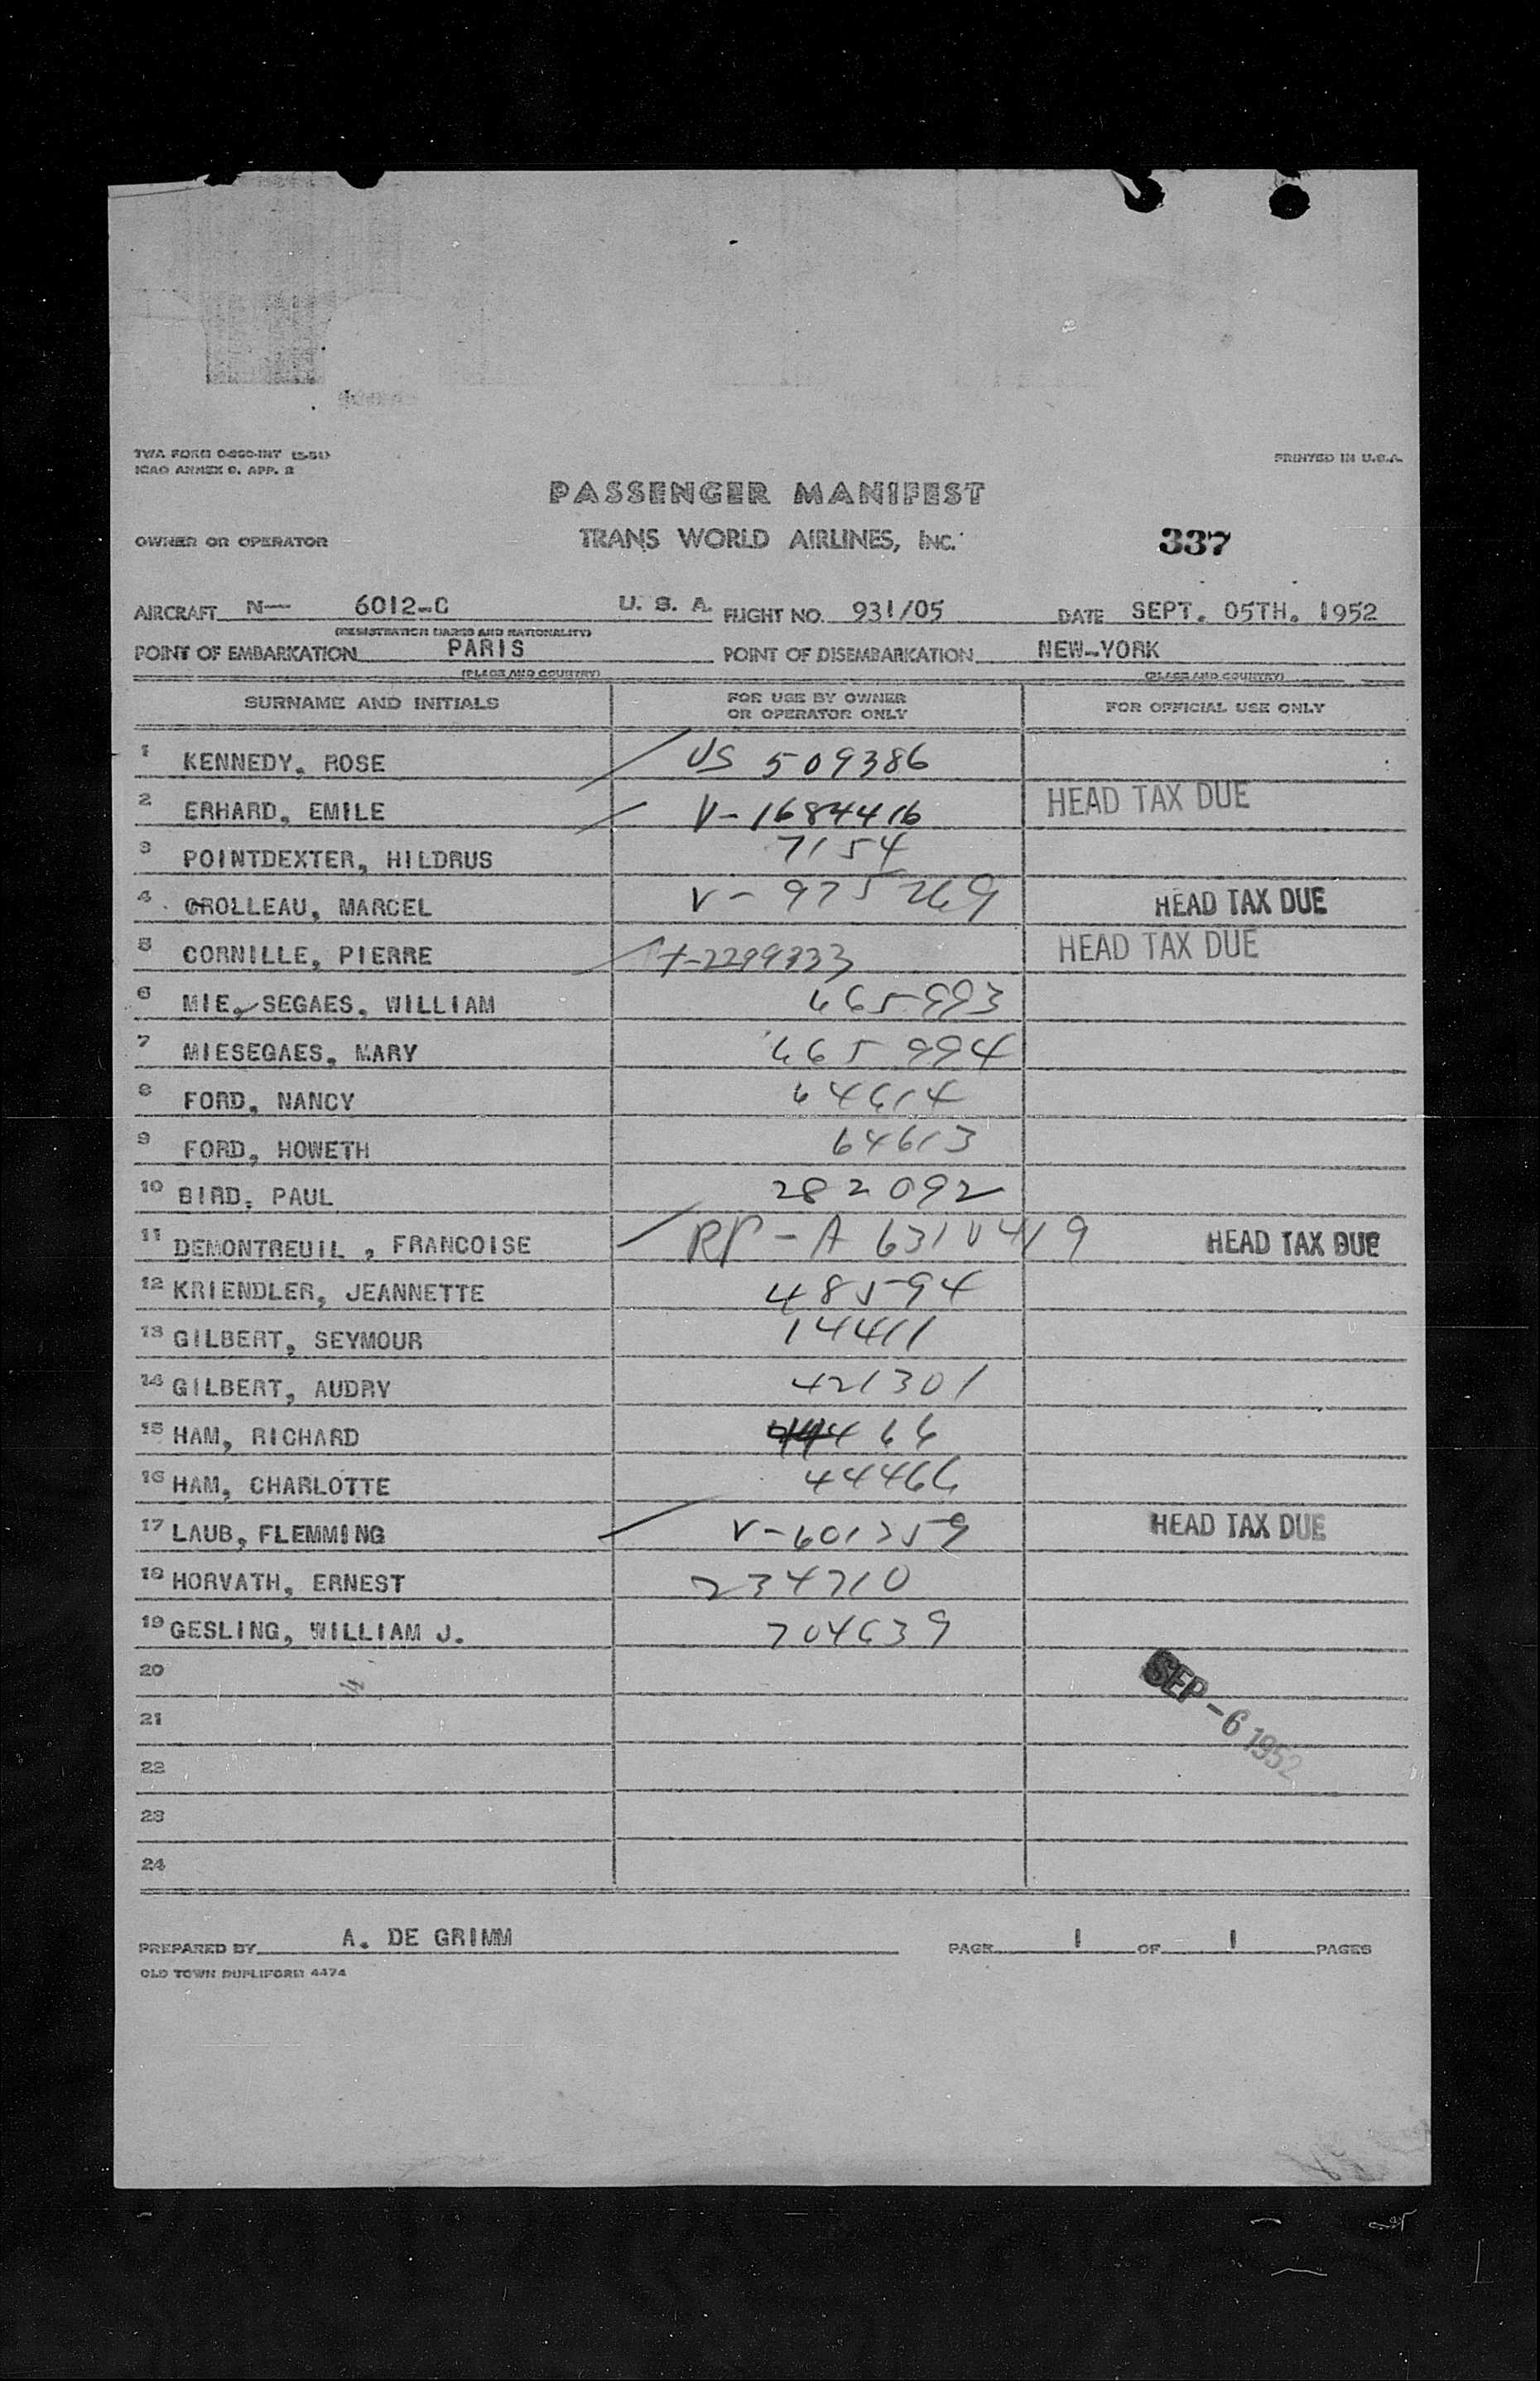 TWA FORM 0-260-INT (5-51)
ICAO ANNEX 9. APP. 2
PRINTED IN U.S.A.
PASSENGER MANIFEST
OWNER OR OPERATOR TRANS WORLD AIRLINES, INC. 337
AIRCRAFT N— 6012-C U. S. A. FLIGHT NO. 931/05 DATE SEPT. 05TH. 1952
(REGISTRATION MARKS AND NATIONALITY)
POINT OF EMBARKATION PARIS POINT OF DISEMBARKATION NEW-YORK
(PLACE AND COUNTRY) (PLACE AND COUNTRY)
SURNAME AND INITIALS FOR USE BY OWNER OR OPERATOR ONLY FOR OFFICIAL USE ONLY
1 KENNEDY, ROSE US 509386
2 ERHARD, EMILE V-1684416 HEAD TAX DUE
3 POINTDEXTER, HILDRUS 7154
4 GROLLEAU, MARCEL V-975269 HEAD TAX DUE
5 CORNILLE, PIERRE HEAD TAX DUE
6 MIE, SEGAES, WILLIAM 665993
7 MIESEGAES, MARY 665994
8 FORD, NANCY 64614
9 FORD, HOWETH 64613
10 BIRD, PAUL 282092
11 DEMONTREUIL , FRANCOISE RP-A 6310419 HEAD TAX DUE
12 KRIENDLER, JEANNETTE 48594
13 GILBERT, SEYMOUR 14411
14 GILBERT, AUDRY 421301
15 HAM, RICHARD 466
16 HAM, CHARLOTTE 44466
17 LAUB, FLEMMING V-601759 HEAD TAX DUE
18 HORVATH, ERNEST 234710
19 GESLING, WILLIAM J. 704639
20
SEP -6 1952
21
22
23
24
PREPARED BY A. DE GRIMM PAGE 1 OF 1 PAGES
OLD TOWN DUPLIFORM 4474